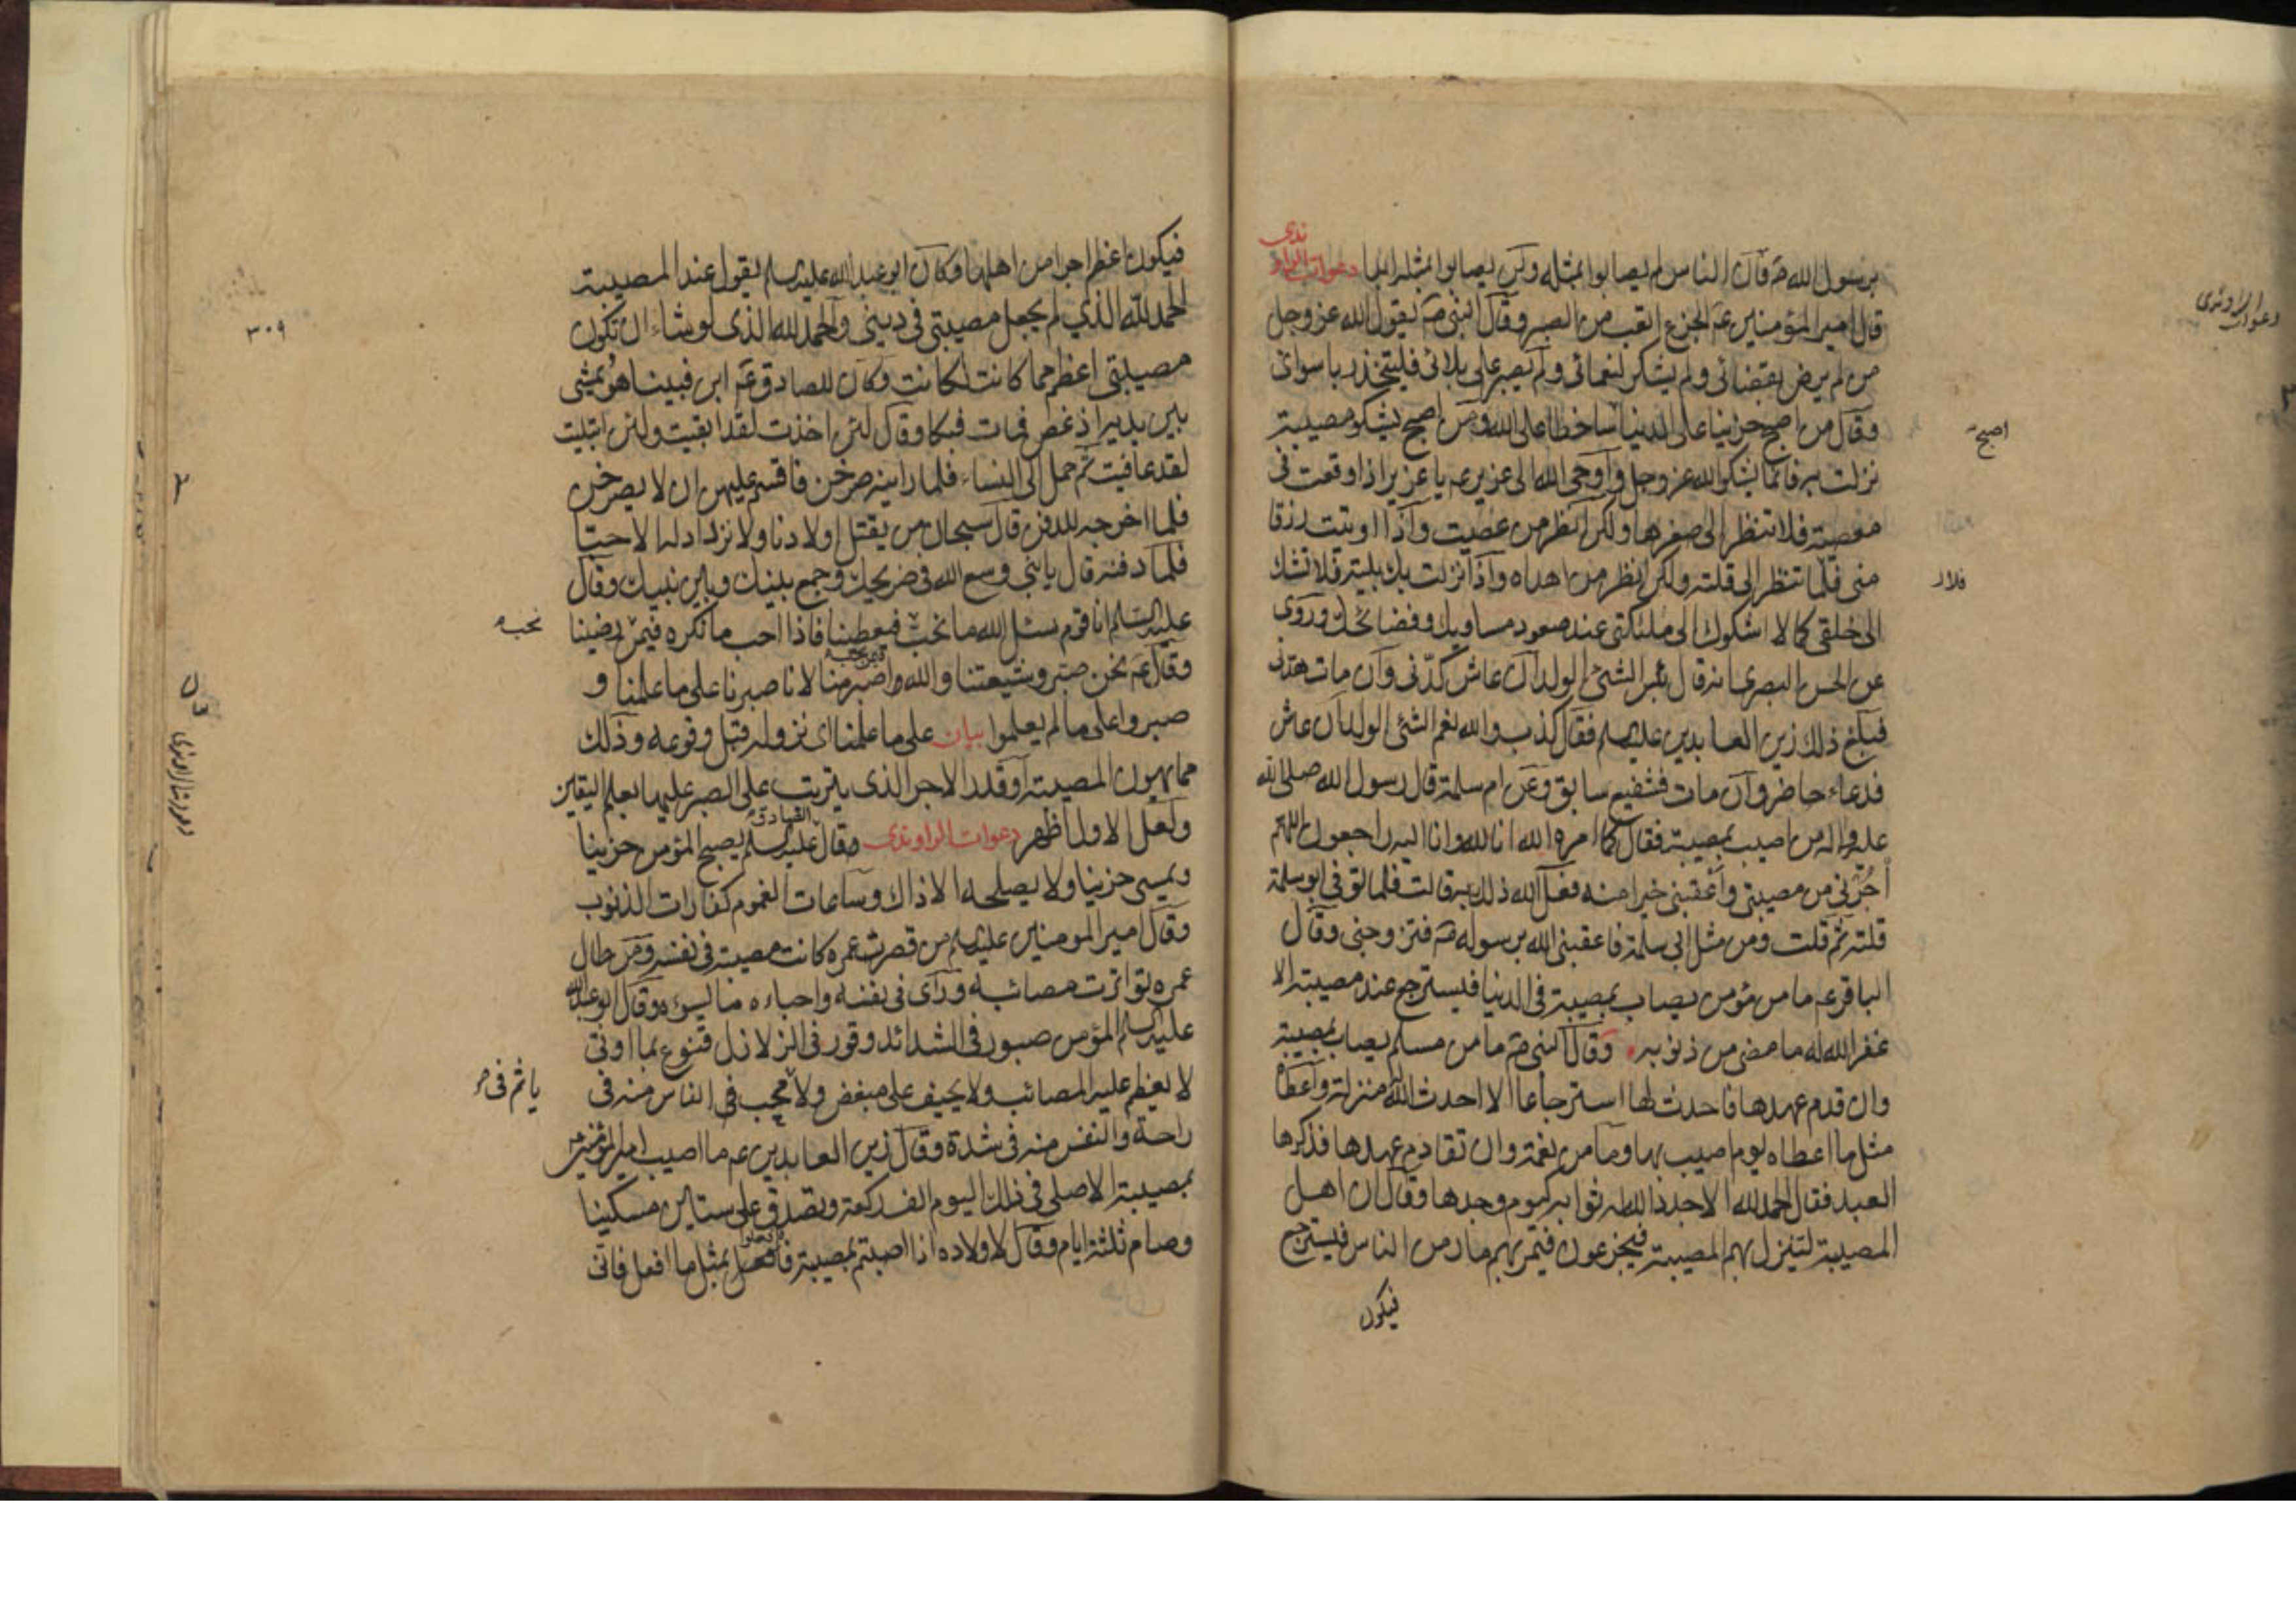 برسول الله ص فان الناس لم يصابوا بمثله ولن يصابوا بمثله ابدا دعوات الراوندى
قال امير المؤمنين ع الجزع اتعب من الصبر وقال النبى ص يقول الله عز وجل
من لم يرض بقضائى ولم يشكر لنعمائى ولم يصبر على بلائى فليتخذ ربا سوائى
وقال من اصبح حزينا على الدنيا ساخطا على الله ومن اصبح يشكو مصيبة
نزلت به فانما يشكو الله عز وجل واوحى الله الى عزير ع يا عزير اذا وقعت فى
معصية فلا تنظر الى صغرها ولكن انظر من عصيت واذا اوتيت رزقا
منى فلا تنظر الى قلته ولكن انظر من اهداه واذا نزلت بك بلية فلا تشك
الى خلقى كما لا اشكوك الى ملئكتى عند صعود مساويك وفضائحك وروى
عن الحسن البصرى انه قال بئس الشئ الولد ان عاش كدنى وان مات هدنى
فبلغ ذلك زين العابدين عليه السلم فقال كذب والله نعم الشئ الولد ان عاش
فدعاء حاضر وان مات فشفيع سابق وعن ام سلمة قال رسول الله صلى الله
عليه واله من اصيب بمصيبة فقال كما امره الله انا لله وانا اليه راجعون اللهم
أجرنى من مصيبتى وأعقبنى خيرا منه فعل الله ذلك به قالت فلما توفى ابو سلمة
قلته ثم قلت ومن مثل ابى سلمة فاعقبنى الله برسوله ص فتزوجنى وقال
الباقر ع ما من مؤمن يصاب بمصيبة فى الدنيا فيسترجع عند مصيبته الا
غفر الله له ما مضى من ذنوبه وقال النبى ص ما من مسلم يصاب بمصيبة
وان قدم عهدها فاحدث لها استرجاعا الا احدث الله له منزلة واعطاه
مثل ما اعطاه يوم اصيب بها وما من نعمة وان تقادم عهدها فذكرها
العبد فقال الحمد لله الا جدد الله له ثوابه كيوم وجدها وقال ان اهل
المصيبة لتنزل بهم المصيبة فيجزعون فيمر بهم مار من الناس فيسترجع
فيكون
دعوات الراوندى
اصبح
فلا
فيكون اعظم اجرا من اهلها وكان ابو عبد الله عليه السلم يقول عند المصيبة
الحمد لله الذي لم يجعل مصيبتى فى دينى والحمد لله الذى لو شاء ان تكون
مصيبتى اعظم مما كانت لكانت وكان للصادق ع ابن فبينا هو يمشى
بين يديه اذ غص فمات فبكا وقال لئن اخذت لقد ابقيت ولئن ابتليت
لقد عافيت ثم حمل الى النساء فلما راينه صرخن فاقسم عليهن ان لا يصرخن
فلما اخرجه للدفن قال سبحان من يقتل اولادنا ولا نزداد له الا حبا
فلما دفنه قال يا بنى وسع الله فى ضريحك وجمع بينك وبين نبيك وقال
عليه السلم انا قوم نسئل الله ما نحب فيعطينا فاذا احب ما نكره فيمن نحب رضينا
وقال ع نحن صبر وشيعتنا والله واصبر منا لانا صبرنا على ما علمنا و
صبروا على ما لم يعلموا بيان على ما علمنا اى نزوله قبل وقوعه وذلك
مما يهون المصيبة او قدر الاجر الذى يترتب على الصبر عليها بعلم اليقين
ولعل الاول اظهر دعوات الراوندى وقال الصادق عليه السلم يصبح المؤمن حزينا
ويمسى حزينا ولا يصلحه الا ذاك وساعات الغموم كفارات الذنوب
وقال امير المومنين عليه السلم من قصرت عمره كانت مصيبته فى نفسه ومن طال
عمره تواترت مصائبه وراى فى نفسه واحباءه ما يسوءه وقال ابو عبد الله
عليه السلم المؤمن صبور فى الشدائد وقور فى الزلازل قنوع بما اوتى
لا يعظم عليه المصائب ولا يحيف على مبغض ولا فى محب الناس منه فى
راحة والنفس منه فى شدة وقال زين العابدين ع ما اصيب امير المؤمنين
بمصيبة الا صلى فى ذلك اليوم الف ركعة وتصدق على ستين مسكينا
وصام ثلثة ايام وقال لاولاده اذا اصبتم بمصيبة فافعلوا بمثل ما افعل فانى
٣٠٩
نحب
ياثم فى